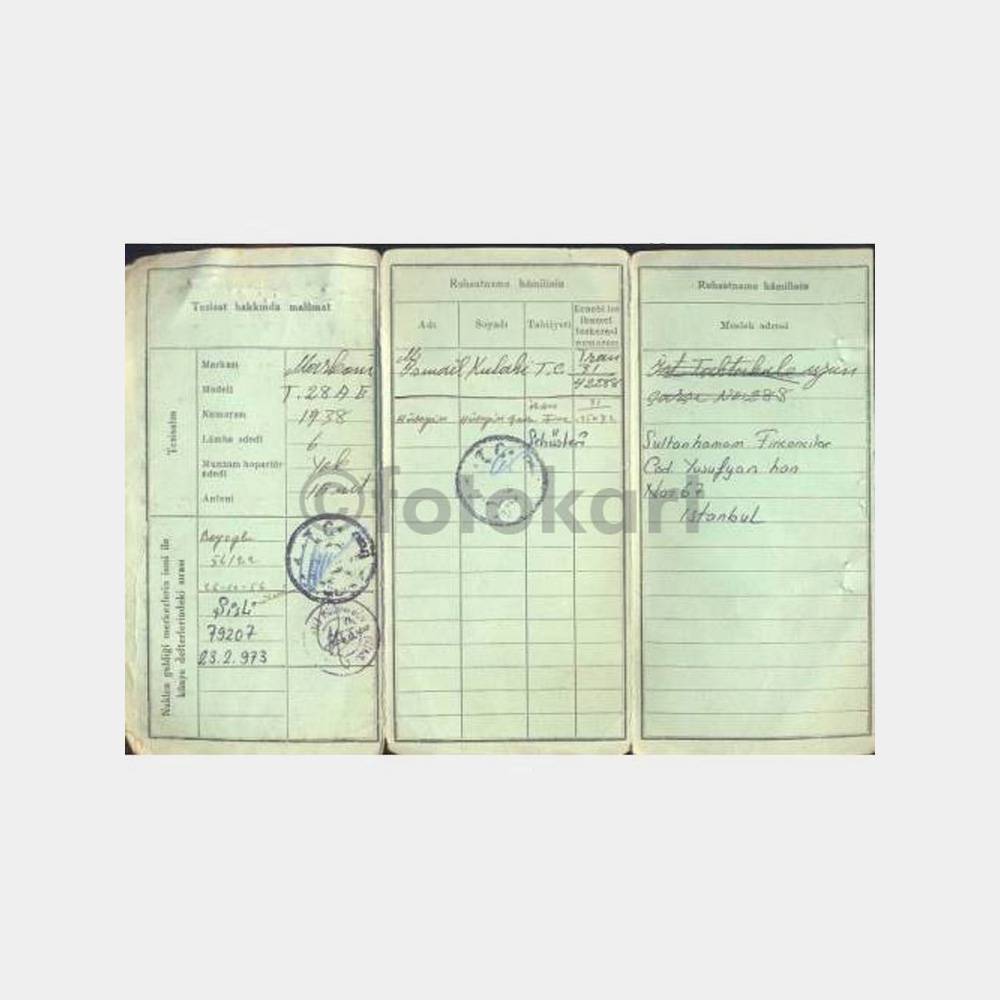 Tesisat hakkında malûmat
Tesisatın
Markası Markoni
Modeli T.28 A E
Numarası 1938
Lâmba adedi 6
Munzam hoparlör adedi Yok
Anteni
Naklen geldiği merkezlerin ismi ile künye defterlerindeki sırası
Beyoğlu
Şişli
79207
23.2.973
T.C.
Ruhsatname hâmilinin
Adı Soyadı Tabiiyeti Ecnebi ise ikamet tezkeresi numarası
M. İsmail Kulahi T.C. İran
31
42288
Hüseyin
31
T.C.
Ruhsatname hâmilinin
Meslek adresi
İst Tahtakale uzun
çarşı No: 288
Sultanhamam Fincancılar
Cad. Yusufyan han
No: 67
İstanbul
©fotokart